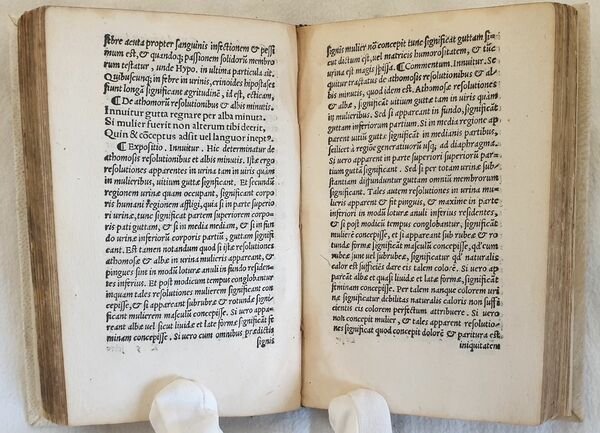 febre acuta propter sanguinis infectionem & pessi
mum est, & quandoq; passionem solidorũ membro
rum testatur, unde Hypo. in ultima particula ait.
Quibuscunq; in febre in urinis, crinoides hipostases
fiunt longã significant ægritudinẽ, id est, ecticam.
¶ De athomorũ resolutionibus & albis minutis.
Innuitur gutta regnare per alba minuta.
Si mulier fuerit non alterum tibi dederit,
Quin & cõceptus adsit uel languor inept9.
¶ Expositio. Innuitur. Hic determinatur de
athomosis resolutionibus et albis minutis. Istæ ergo
resolutiones apparentes in urina tam in uiris quam
in mulieribus, uitium guttæ significant. Et secundũ
regionem urinæ quam occupant, significant corpo
ris humani regionem affligi, quia si in parte superio
ri urinæ, tunc significat partem superiorem corpo
ris pati guttam, & si in media mediam, & si in fun
do urinæ inferiorũ corporis partiũ, guttam signifi
cant. Est tamen notandum quod si istæ resolutiones
athomosæ & albæ in urina mulieris appareant, &
pingues sint in modũ loturæ anuli in fundo residen
tes inferius. Et post modicum tempus conglobantur
inquam tales resolutiones mulierem significant con
cepisse, & si appareant subrubræ & rotundæ signifi
cant masculum concepisse. Si uero appa
reant albæ uel sicut liuidæ et latæ formæ significãt fe
minam concepisse. Si uero cum omnibus prædictis
signis
signis mulier nõ concepit tunc significat guttam si=
cut dictum est, uel matricis humorositatem, & tũc
urina est magis spissa. ¶ Commentum. Innuitur. Se
quitur tractatus de athomosis resolutionibus et al=
bis minutis, quod idem est. Athomosæ resolutiones
& albæ, significãt uitium guttæ tam in uiris quam
in mulieribus. Sed si appareãt in fundo, significant
guttam inferiorum partium. Si in media regione ap
pareãt uitiũ guttæ significãt in medianis partibus,
scilicet ĩ regiõe generatiuorũ usq; ad diaphragma.
Si uero apparent in parte superiori superiorũ par=
tium guttam significant. Sed si per totam urinæ sub=
stantiam diffunduntur guttam omniũ membrorum
significant. Tales autem resolutiones in urina mu=
lieris apparent & si pingues, & maxime in parte
inferiori in modũ loturæ anuli inferius residentes,
& si post modicũ tempus conglobantur, significãt
mulierẽ concepisse, & si appareant sub rubeæ & ro=
tundæ formæ significãt masculũ concepisse, qd' cum
rubeæ sunt uel subrubeæ, significãt qd' naturalis
calor est sufficiẽs dare eis talem colorẽ. Si uero ap=
pareãt albæ & quasi liuidæ & latæ formæ significãt
feminam concepisse. Per talem nanque colorem uri
næ significatur debilitas naturalis caloris non suffi
cientis eis colorem perfectum attribuere. Si uero
non concepit mulier, & tales apparent resolutio=
nes significat quod concepit dolorẽ & paritura est
iniquitatem